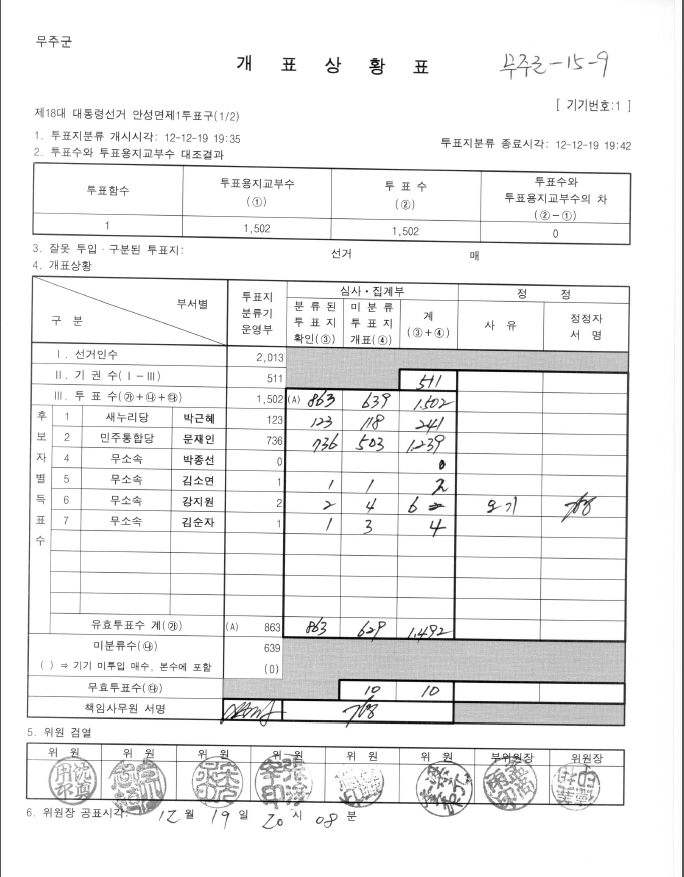 무주군
개 표 상 황 표
무주군-15-9
[ 기기번호:1 ]
제18대 대통령선거 안성면제1투표구(1/2)
1. 투표지분류 개시시각: 12-12-19 19:35
투표지분류 종료시각: 12-12-19 19:42
2. 투표수와 투표용지교부수 대조결과
투표함수 투표용지교부수 (①) 투 표 수 (②) 투표수와 투표용지교부수의 차 (②-①)
1 1,502 1,502 0
3. 잘못 투입·구분된 투표지: 선거 매
4. 개표상황
구 분 부서별 투표지 분류기 운영부 심사·집계부 정 정
분 류 된 투 표 지 확인(③) 미 분 류 투 표 지 개표(④) 계 (③+④) 사 유 정정자 서 명
Ⅰ. 선거인수 2,013
Ⅱ. 기 권 수(Ⅰ-Ⅲ) 511 511
Ⅲ. 투 표 수(㉮+㉯+㉰) 1,502 (A) 863 639 1,502
후보자별득표수
1 새누리당 박근혜 123 123 118 241
2 민주통합당 문재인 736 736 503 1,239
4 무소속 박종선 0 0
5 무소속 김소연 1 1 1 2
6 무소속 강지원 2 2 4 6 오기
7 무소속 김순자 1 1 3 4
유효투표수 계(㉮) (A) 863 863 629 1,492
미분류수(㉯) 639
( ) ⇒ 기기 미투입 매수, 본수에 포함 (0)
무효투표수(㉰) 10 10
책임사무원 서명
5. 위원 검열
위 원 위 원 위 원 위 원 위 원 위 원 부위원장 위원장
6. 위원장 공표시각: 12 월 19 일 20 시 08 분